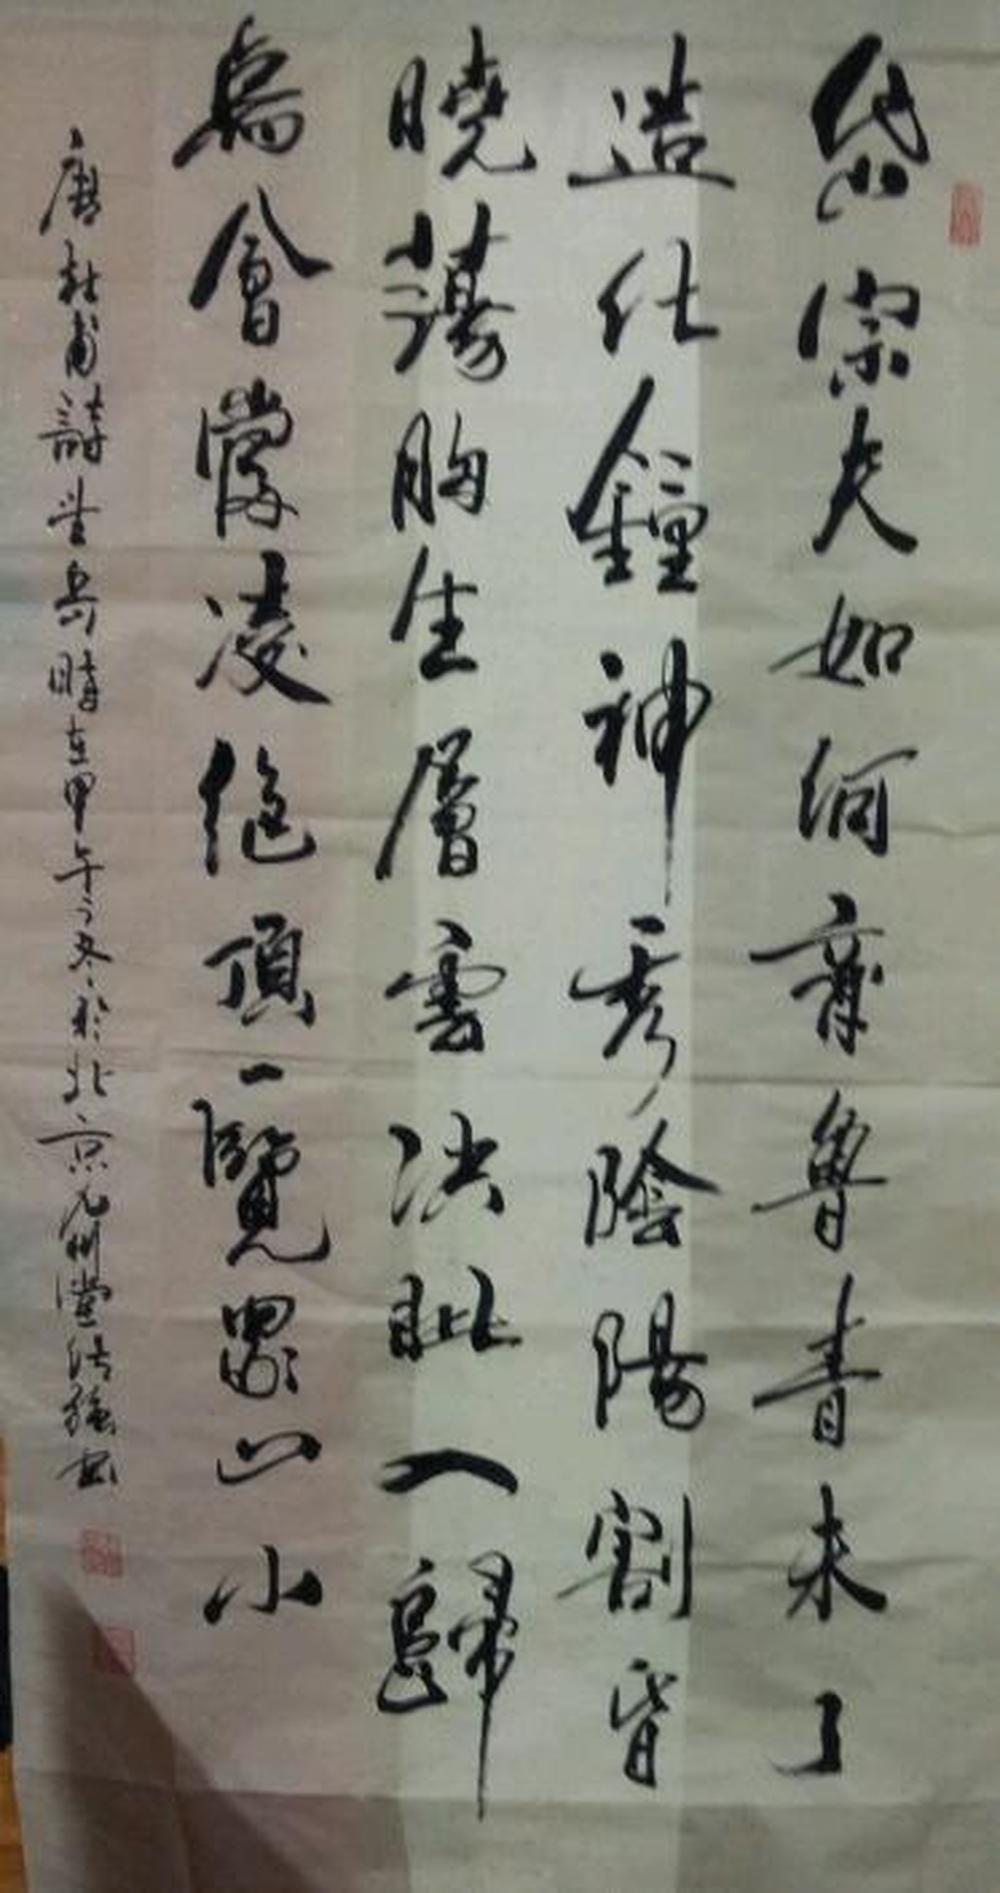 岱宗夫如何齊魯青未了
造化鐘神秀陰陽割昏
曉蕩胸生層雲決眦入歸
鳥會當凌絕頂一覽眾山小
唐杜甫詩望岳時在甲午之冬於北京九州堂強書